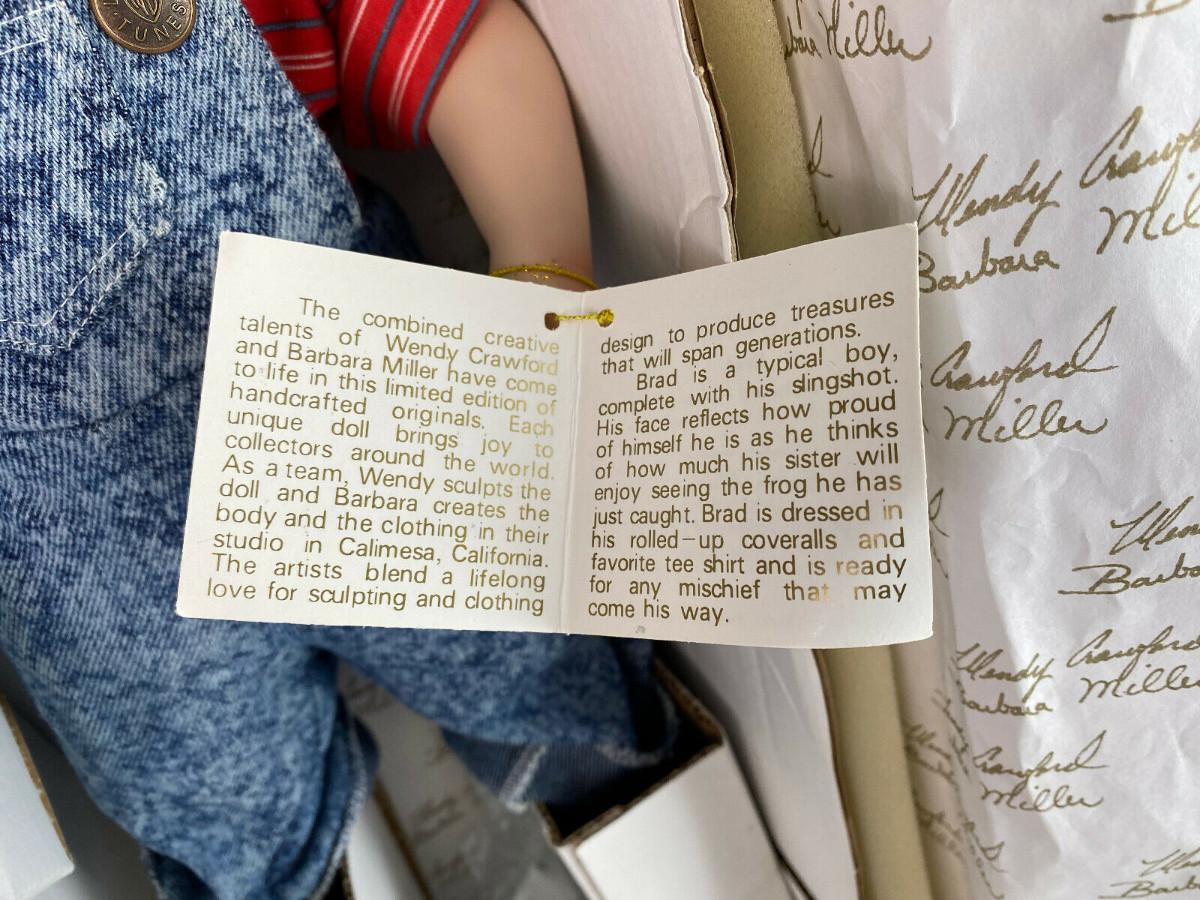 TUNES
The combined creative
talents of Wendy Crawford
and Barbara Miller have come
to life in this limited edition of
handcrafted originals. Each
unique doll brings joy to
collectors around the world.
As a team, Wendy sculpts the
doll and Barbara creates the
body and the clothing in their
studio in Calimesa, California.
The artists blend a lifelong
love for sculpting and clothing
design to produce treasures
that will span generations.
Brad is a typical boy,
complete with his slingshot.
His face reflects how proud
of himself he is as he thinks
of how much his sister will
enjoy seeing the frog he has
just caught. Brad is dressed in
his rolled-up coveralls and
favorite tee shirt and is ready
for any mischief that may
come his way.
Miller
Wendy
Barbara
Crawford
Miller
Wendy Crawford
Barbara Miller
Crawford
Miller